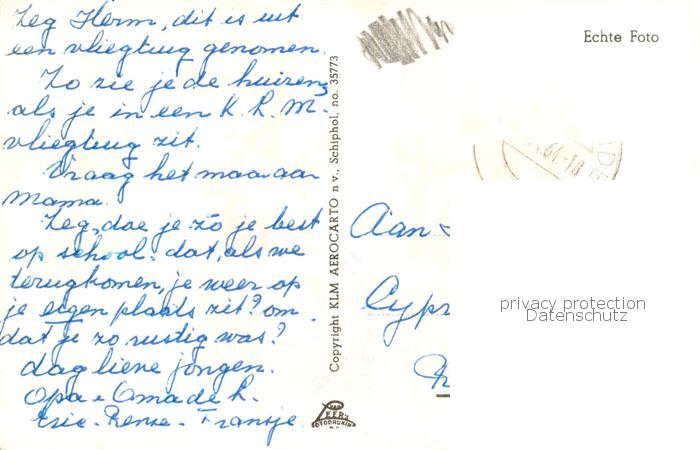 Zeg Herm, dit is uit
een vliegtuig genomen.
Zo zie je de huizen,
als je in een K.L.M.
vliegtuig zit.
Vraag het maar aan
Mama.
Zeg, doe je zo je best
op school: dat, als we
terugkomen, je weer op
je eigen plaats zit? om
dat je zo rustig was?
dag lieve jongen.
Opa + Oma de
Copyright KLM AEROCARTO n.v., Schiphol, no. 35773
Echte Foto
61-18
Aan
privacy protection
Datenschutz
FOTODRUK